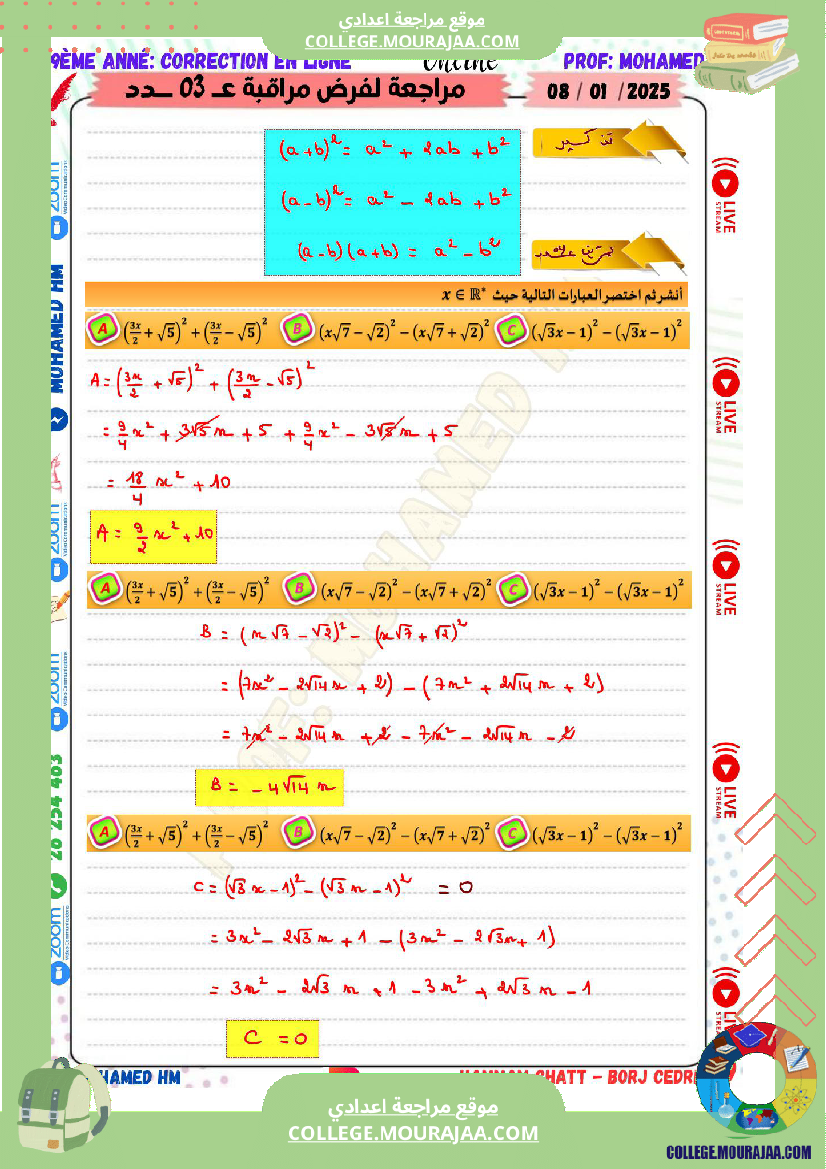 موقع مراجعة اعدادي
COLLEGE.MOURAJAA.COM
9ÈME ANNÉ: CORRECTION EN LIGNE
Online
PROF: MOHAMED
مراجعة لفرض مراقبة عـ 03 ـدد
08 / 01 /2025
تذكير
(a+b)² = a² + 2ab + b²
(a-b)² = a² - 2ab + b²
(a-b)(a+b) = a² - b²
أنشر ثم اختصر العبارات التالية حيث x ∈ ℝ*
A (3x/2 + √5)² + (3x/2 − √5)² B (x√7 − √2)² − (x√7 + √2)² C (√3x − 1)² − (√3x − 1)²
A = (3x/2 + √5)² + (3x/2 - √5)²
= 9/4 x² + 3√5 x + 5 + 9/4 x² - 3√5 x + 5
= 18/4 x² + 10
A = 9/2 x² + 10
A (3x/2 + √5)² + (3x/2 − √5)² B (x√7 − √2)² − (x√7 + √2)² C (√3x − 1)² − (√3x − 1)²
B = (x√7 - √2)² - (x√7 + √2)²
= (7x² - 2√14 x + 2) - (7x² + 2√14 x + 2)
= 7x² - 2√14 x + 2 - 7x² - 2√14 x - 2
B = - 4√14 x
A (3x/2 + √5)² + (3x/2 − √5)² B (x√7 − √2)² − (x√7 + √2)² C (√3x − 1)² − (√3x − 1)²
C = (√3 x - 1)² - (√3 x - 1)² = 0
= 3x² - 2√3 x + 1 - (3x² - 2√3 x + 1)
= 3x² - 2√3 x + 1 - 3x² + 2√3 x - 1
C = 0
zoom
MOHAMED HM
zoom
zoom
28 254 483
zoom
LIVE
STREAM
LIVE
STREAM
LIVE
STREAM
LIVE
STREAM
MOHAMED HM
HAMMAM CHATT - BORJ CEDRIA
موقع مراجعة اعدادي
COLLEGE.MOURAJAA.COM
COLLEGE.MOURAJAA.COM